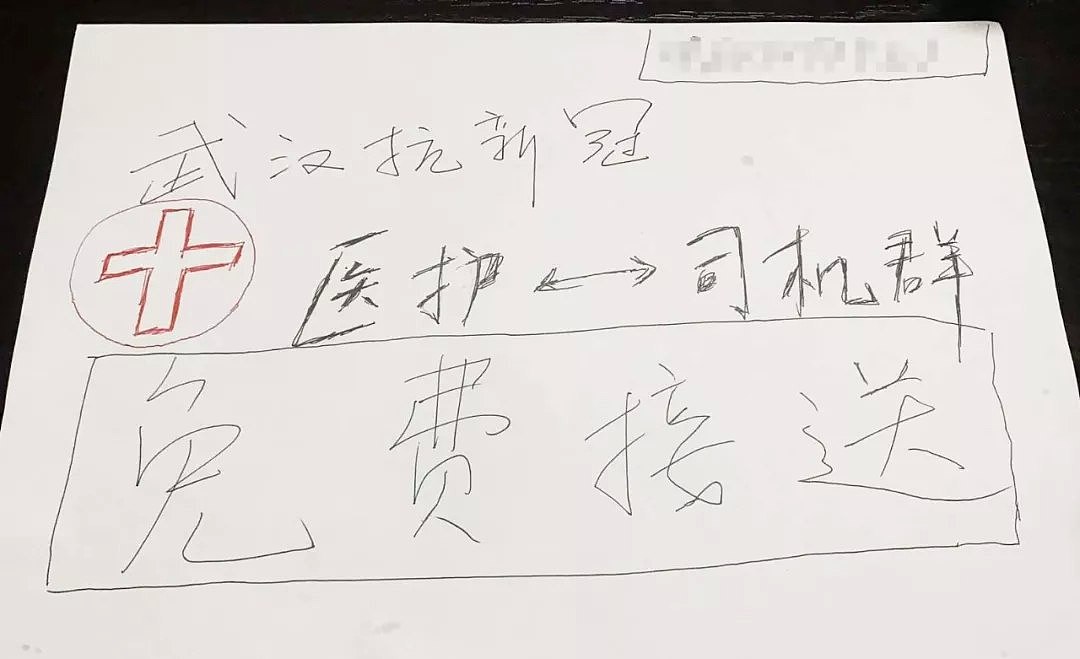 武汉抗新冠
医护 ←→ 司机群
免费接送